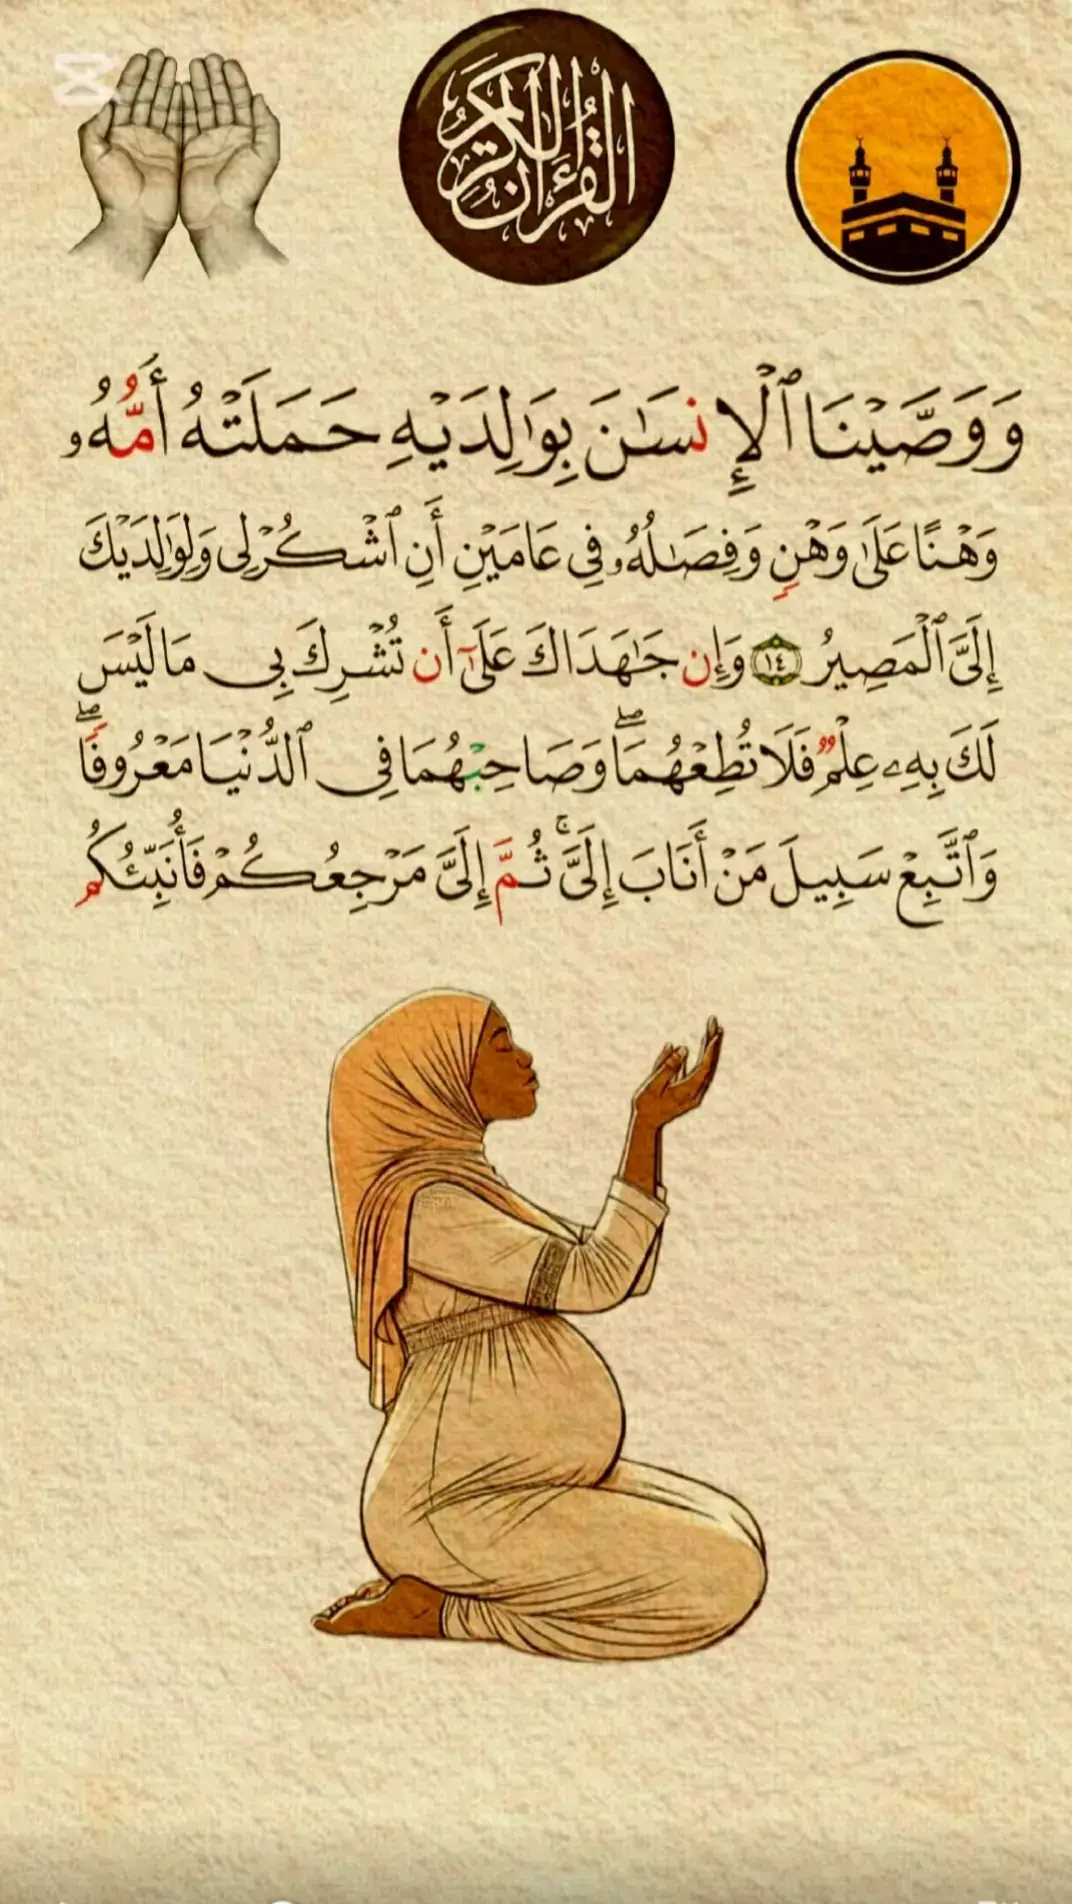 القرآن الكريم
وَوَصَّيْنَا ٱلْإِنسَٰنَ بِوَٰلِدَيْهِ حَمَلَتْهُ أُمُّهُۥ
وَهْنًا عَلَىٰ وَهْنٍ وَفِصَٰلُهُۥ فِى عَامَيْنِ أَنِ ٱشْكُرْ لِى وَلِوَٰلِدَيْكَ
إِلَىَّ ٱلْمَصِيرُ ١٤ وَإِن جَٰهَدَاكَ عَلَىٰٓ أَن تُشْرِكَ بِى مَا لَيْسَ
لَكَ بِهِۦ عِلْمٌ فَلَا تُطِعْهُمَا ۖ وَصَاحِبْهُمَا فِى ٱلدُّنْيَا مَعْرُوفًا ۖ
وَٱتَّبِعْ سَبِيلَ مَنْ أَنَابَ إِلَىَّ ۚ ثُمَّ إِلَىَّ مَرْجِعُكُمْ فَأُنَبِّئُكُم